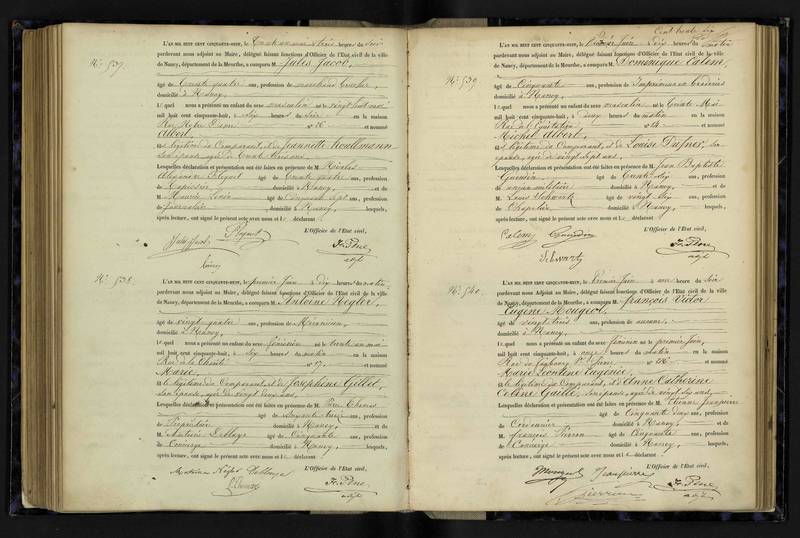 N.º 537.
L'AN MIL HUIT CENT CINQUANTE-HUIT, le trente un mai à trois heures du soir
pardevant nous adjoint au Maire, délégué faisant fonctions d'Officier de l'Etat civil de la ville
de Nancy, département de la Meurthe, a comparu M. Jules Jacob,
âgé de trente quatre ans, profession de marchand
domicilié à Nancy,
lequel nous a présenté un enfant du sexe masculin né le vingt huit mai
mil huit cent cinquante-huit, à six heures du soir en la maison
Rue Notre Dame n.º et nommé
Albert,
fils légitime du Comparant, et de Jeannette
son épouse, agée de trente
Lesquelles déclaration et présentation ont été faites en présence de M. Nicolas
âgé de trente quatre ans, profession
de Tapissier domicilié à Nancy, et de
M. Maurice Lévin âgé de cinquante sept ans, profession
de domicilié à Nancy, lesquels,
après lecture, ont signé le présent acte avec nous et le déclarant
L'Officier de l'Etat civil,
adjt
N.º 538.
L'AN MIL HUIT CENT CINQUANTE-HUIT, le premier Juin à dix heures du matin,
pardevant nous adjoint au Maire, délégué faisant fonctions d'Officier de l'Etat civil de la ville
de Nancy, département de la Meurthe, a comparu M. Antoine Kegler,
âgé de vingt quatre ans, profession de Mécanicien,
domicilié à Nancy,
lequel nous a présenté un enfant du sexe féminin né le trente un mai
mil huit cent cinquante-huit, à six heures du matin en la maison
Rue de la Charité n.º 17, et nommé
Marie,
fille légitime du Comparant, et de Josephine Gillet,
son épouse, agée de vingt deux ans,
Lesquelles déclaration et présentation ont été faites en présence de M.
âgé de soixante ans, profession
de Propriétaire domicilié à Nancy et de
M. Antoine âgé de cinquante ans, profession
de Concierge domicilié à Nancy, lesquels,
après lecture, ont signé le présent acte avec nous et le déclarant
L'Officier de l'Etat civil,
adjt
Cent trente six
N.º 539.
L'AN MIL HUIT CENT CINQUANTE-HUIT, le Premier Juin à dix heures du matin
pardevant nous adjoint au Maire, délégué faisant fonctions d'Officier de l'Etat civil de la ville
de Nancy, département de la Meurthe, a comparu M. Dominique Calem,
âgé de Cinquante ans, profession de Imprimeur en broderies
domicilié à Nancy,
lequel nous a présenté un enfant du sexe masculin né le trente Mai
mil huit cent cinquante-huit, à deux heures du matin en la maison
Rue de l'Equitation n.º 14 et nommé
Michel Albert,
fils légitime du Comparant, et de Louise Dufner, son
épouse, agée de vingt sept ans,
Lesquelles déclaration et présentation ont été faites en présence de M. Jean Baptiste
âgé de trente six ans, profession
de ancien militaire domicilié à Nancy, et de
M. Louis Schwartz âgé de vingt six ans, profession
de Chapelier domicilié à Nancy, lesquels,
après lecture, ont signé le présent acte avec nous et le déclarant
L'Officier de l'Etat civil,
Calem
Schwartz
adjt
N.º 540.
L'AN MIL HUIT CENT CINQUANTE-HUIT, le Premier Juin à une heure du soir
pardevant nous adjoint au Maire, délégué faisant fonctions d'Officier de l'Etat civil de la ville
de Nancy, département de la Meurthe, a comparu M. françois Victor
Eugène Mougeot,
âgé de vingt trois ans, profession de
domicilié à Nancy,
lequel nous a présenté un enfant du sexe féminin né le premier Juin,
mil huit cent cinquante-huit, à onze heures du matin en la maison
Rue du faubourg St. Pierre n.º et nommé
Marie Léontine Eugénie,
fille légitime du Comparant, et de Anne Catherine
Celène Gaille, son épouse, agée de vingt six ans,
Lesquelles déclaration et présentation ont été faites en présence de M. Etienne Jeanpierre
âgé de Cinquante deux ans, profession
de Cordonnier domicilié à Nancy, et de
M. françois Pierron âgé de Cinquante ans, profession
de Concierge domicilié à Nancy, lesquels,
après lecture, ont signé le présent acte avec nous et le déclarant
L'Officier de l'Etat civil,
Mougeot Jeanpierre
Pierron
adjt